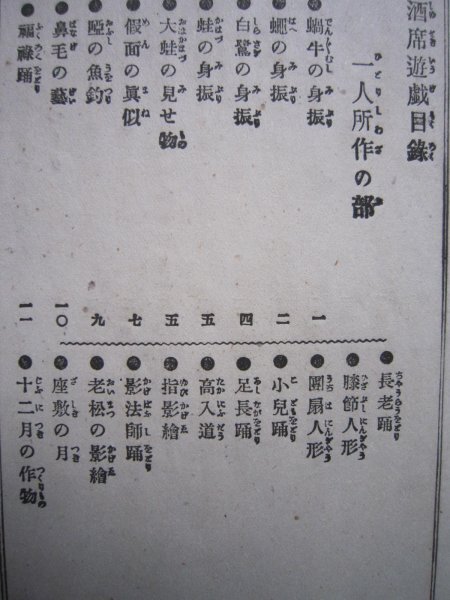 酒席遊戯目錄
一人所作の部
●蝸牛の身振 一
●蠅の身振 二
●白鷺の身振 四
●蛙の身振 五
●大蛙の見せ物 五
●假面の眞似 七
●啞の魚釣 九
●鼻毛の藝 一〇
●福祿踊 一一
●長老踊
●膝節人形
●團扇人形
●小兒踊
●足長踊
●高入道
●指影繪
●影法師踊
●老松の影繪
●座敷の月
●十二月の作物